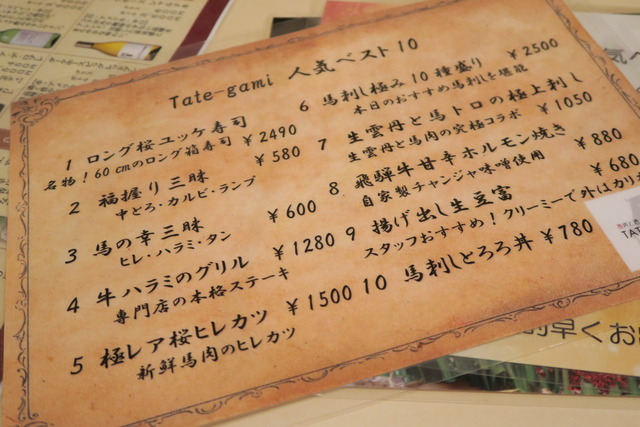 Tate-gami 人気ベスト10
1 ロング桜ユッケ寿司
名物！60cmのロング箱寿司 ¥2490
2 福握り三昧 ¥580
中とろ・カルビ・ランプ
3 馬の幸三昧 ¥600
ヒレ・ハラミ・タン
4 牛ハラミのグリル ¥1280
専門店の本格ステーキ
5 極レア桜ヒレカツ ¥1500
新鮮馬肉のヒレカツ
6 馬刺し極み10種盛り ¥2500
本日のおすすめ馬刺しを堪能
7 生雲丹と馬トロの極上刺し ¥1050
生雲丹と馬肉の究極コラボ
8 飛騨牛甘辛ホルモン焼き ¥880
自家製チャンジャ味噌使用
9 揚げ出し生豆富 ¥680
スタッフおすすめ！クリーミーで外はカリ
10 馬刺しとろろ丼 ¥780
早くお